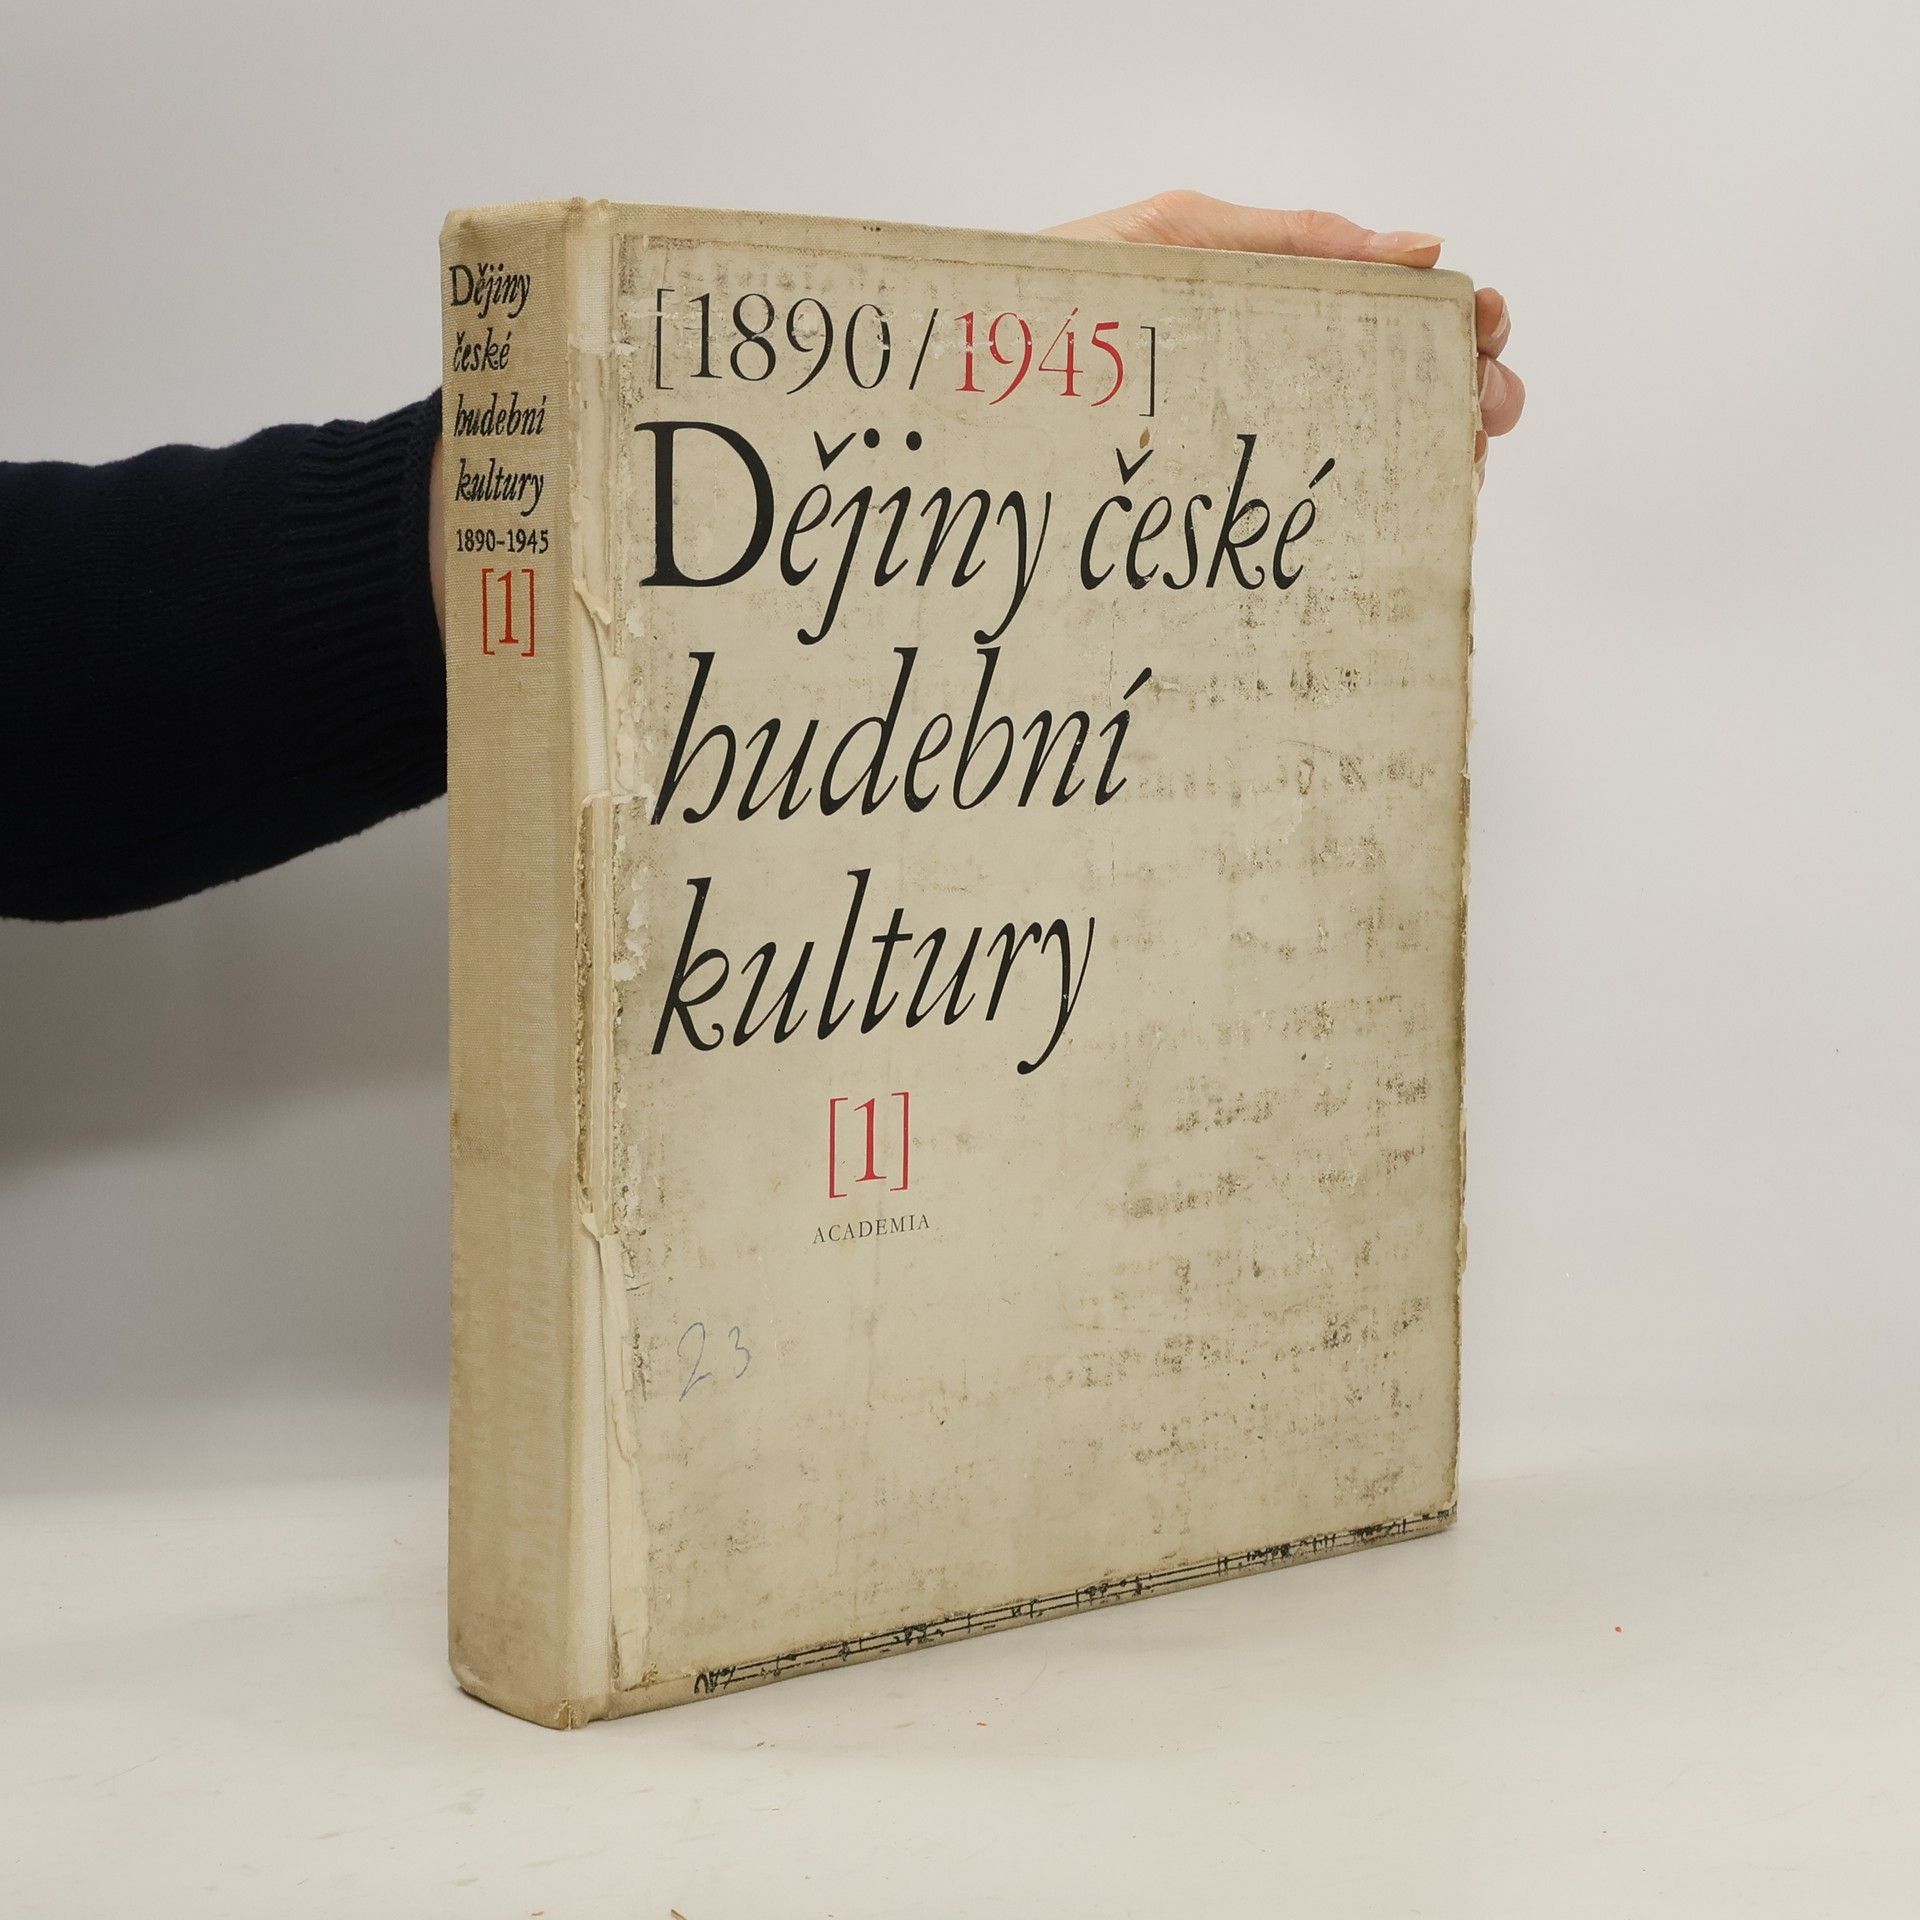 Dějiny
české
hudební
kultury
1890-1945
[1]
[1890/1945]
Dějiny české
hudební
kultury
[1]
ACADEMIA
23